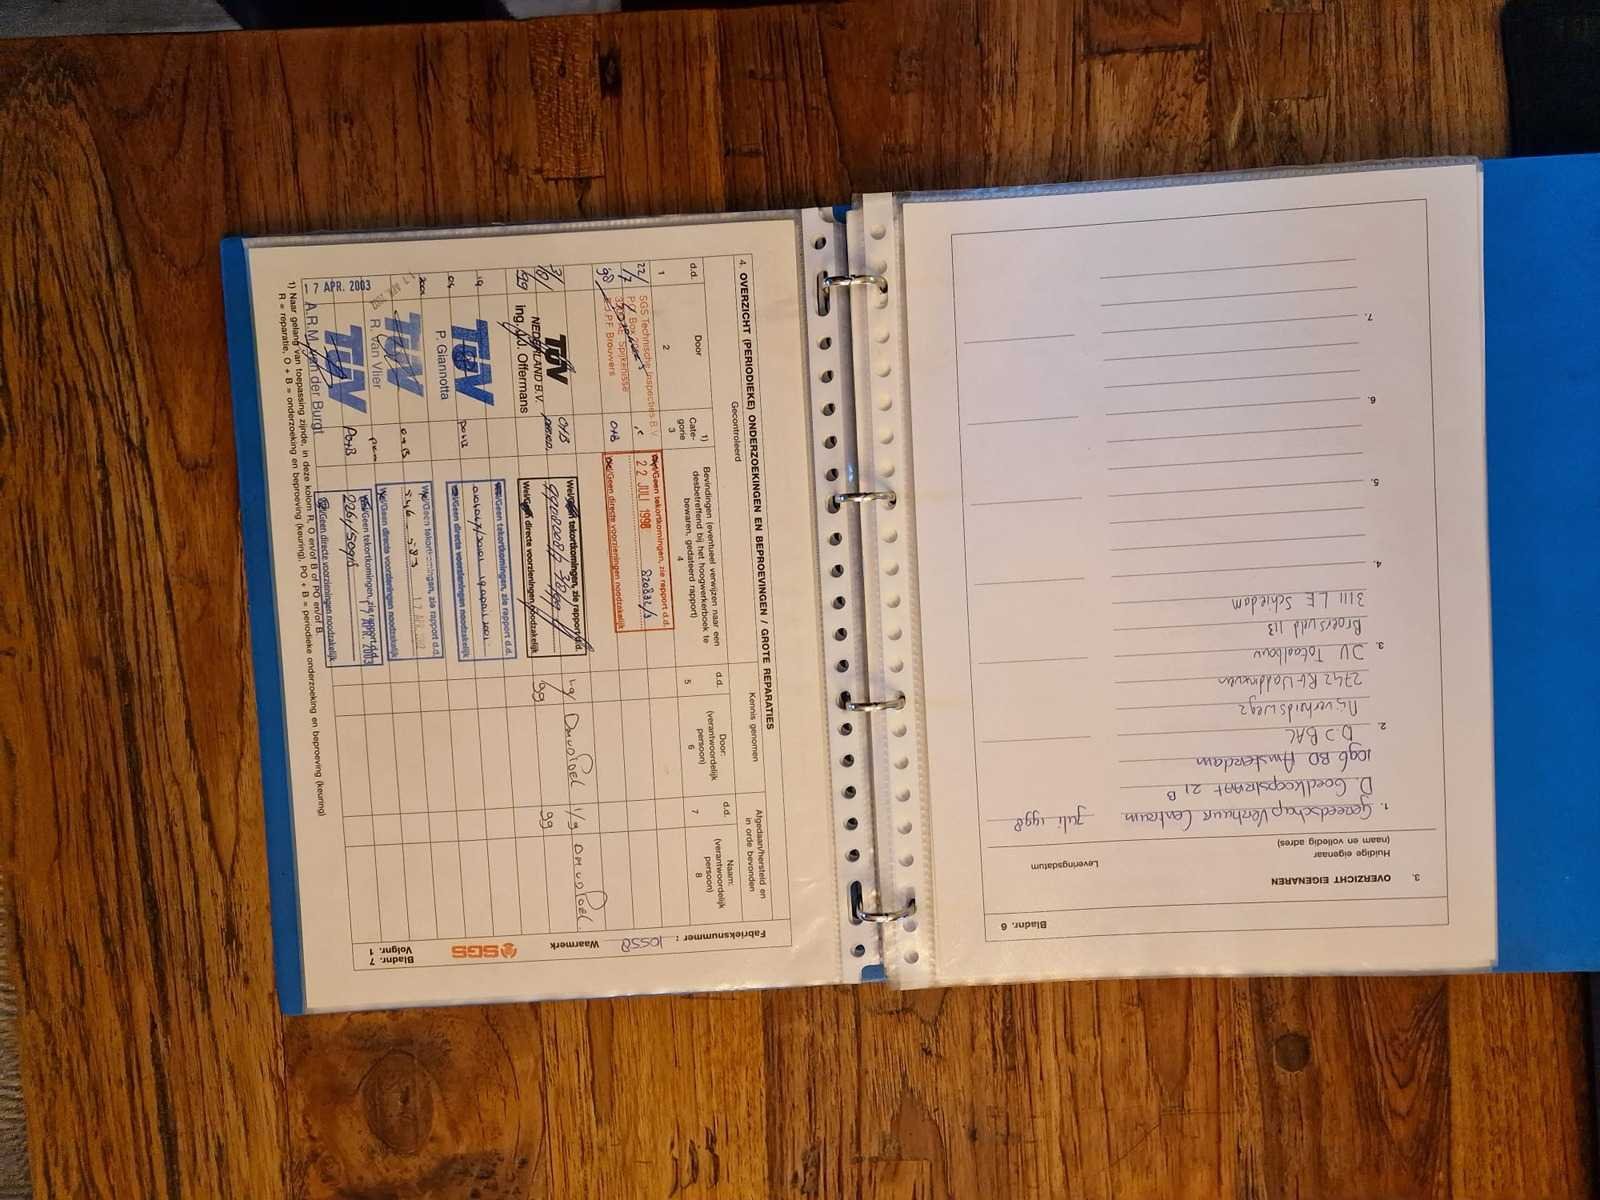 Bladnr. 6
3. OVERZICHT EIGENAREN
Huidige eigenaar
(naam en volledig adres)
Leveringsdatum
1. Gereedschap Verhuur Centrum
juli 1998
D. Goedkoopstraat 21 B
1096 BD Amsterdam
2. DJ BAL
Nijverheidsweg 2
2742 RG Waddinxveen
3. JV Totaalbouw
Broersveld 113
3111 LE Schiedam
4.
5.
6.
7.
Fabrieksnummer : 10558
Waarmerk
SGS
Bladnr. 7
Volgnr. 1
4. OVERZICHT (PERIODIEKE) ONDERZOEKINGEN EN BEPROEVINGEN / GROTE REPARATIES
Gecontroleerd
Kennis genomen
Afgedaan/hersteld en
in orde bevonden
d.d.
1
Door
2
1)
Cate-
gorie
3
Bevindingen (eventueel verwijzen naar een
desbetreffend bij het hoogwerkerboek te
bewaren, gedateerd rapport)
4
d.d.
5
Door:
(verantwoordelijk
persoon)
6
d.d.
7
Naam:
(verantwoordelijk
persoon)
8
22/7
98
SGS Technische Inspecties B.V.
Spijkenisse
P.F. Brouwers
O+B
Wel/Geen tekortkomingen, zie rapport d.d.
22 JULI 1998 820832/3
Wel/Geen directe voorzieningen noodzakelijk
99
TÜV
NEDERLAND B.V.
ing. J.J. Offermans
O+B
Wel/Geen tekortkomingen, zie rapport d.d.
Wel/Geen directe voorzieningen noodzakelijk
1/9
99
1/9
99
19
04
2001
TÜV
P. Giannotta
PO+B
Wel/Geen tekortkomingen, zie rapport d.d.
19 april 2001
Wel/Geen directe voorzieningen noodzakelijk
TÜV
R. van Vlier
Wel/Geen tekortkomingen, zie rapport d.d.
Wel/Geen directe voorzieningen noodzakelijk
17 APR. 2003
TÜV
A.R.M. van der Burgt
PO+B
Wel/Geen tekortkomingen, zie rapport d.d.
17 APR. 2003
Wel/Geen directe voorzieningen noodzakelijk
1) Naar gelang van toepassing zijnde, in deze kolom R, O en/of B of PO en/of B.
R = reparatie, O + B = onderzoeking en beproeving (keuring), PO + B = periodieke onderzoeking en beproeving (keuring)